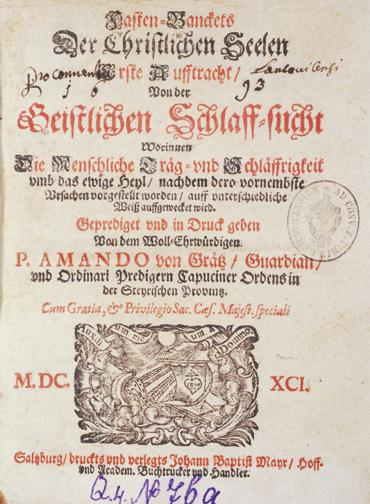 Fasten-Banckets
Der Christlichen Seelen
Erste Aufftracht/
Von der
Geistlichen Schlaff-sucht
Worinnen
Die Menschliche Träg- vnd Schläffrigkeit
vmb das ewige Heyl/ nachdem dero vornembste
Vrsachen vorgestellt worden/ auff vnterschiedliche
Weiß auffgewecket wird.
Geprediget vnd in Druck geben
Von dem Woll-Ehrwürdigen
P. AMANDO von Grätz/ Guardian/
vnd Ordinari Predigern Capuciner Ordens in
der Steyrischen Provintz.
Cum Gratia, & Privilegio Sac. Cæs. Majest. speciali
M.DC. XCI.
Saltzburg/ druckts vnd verlegts Johann Baptist Mayr/ Hoff-
vnd Academ. Buchtrucker vnd Handler.
Q.4. No 76a